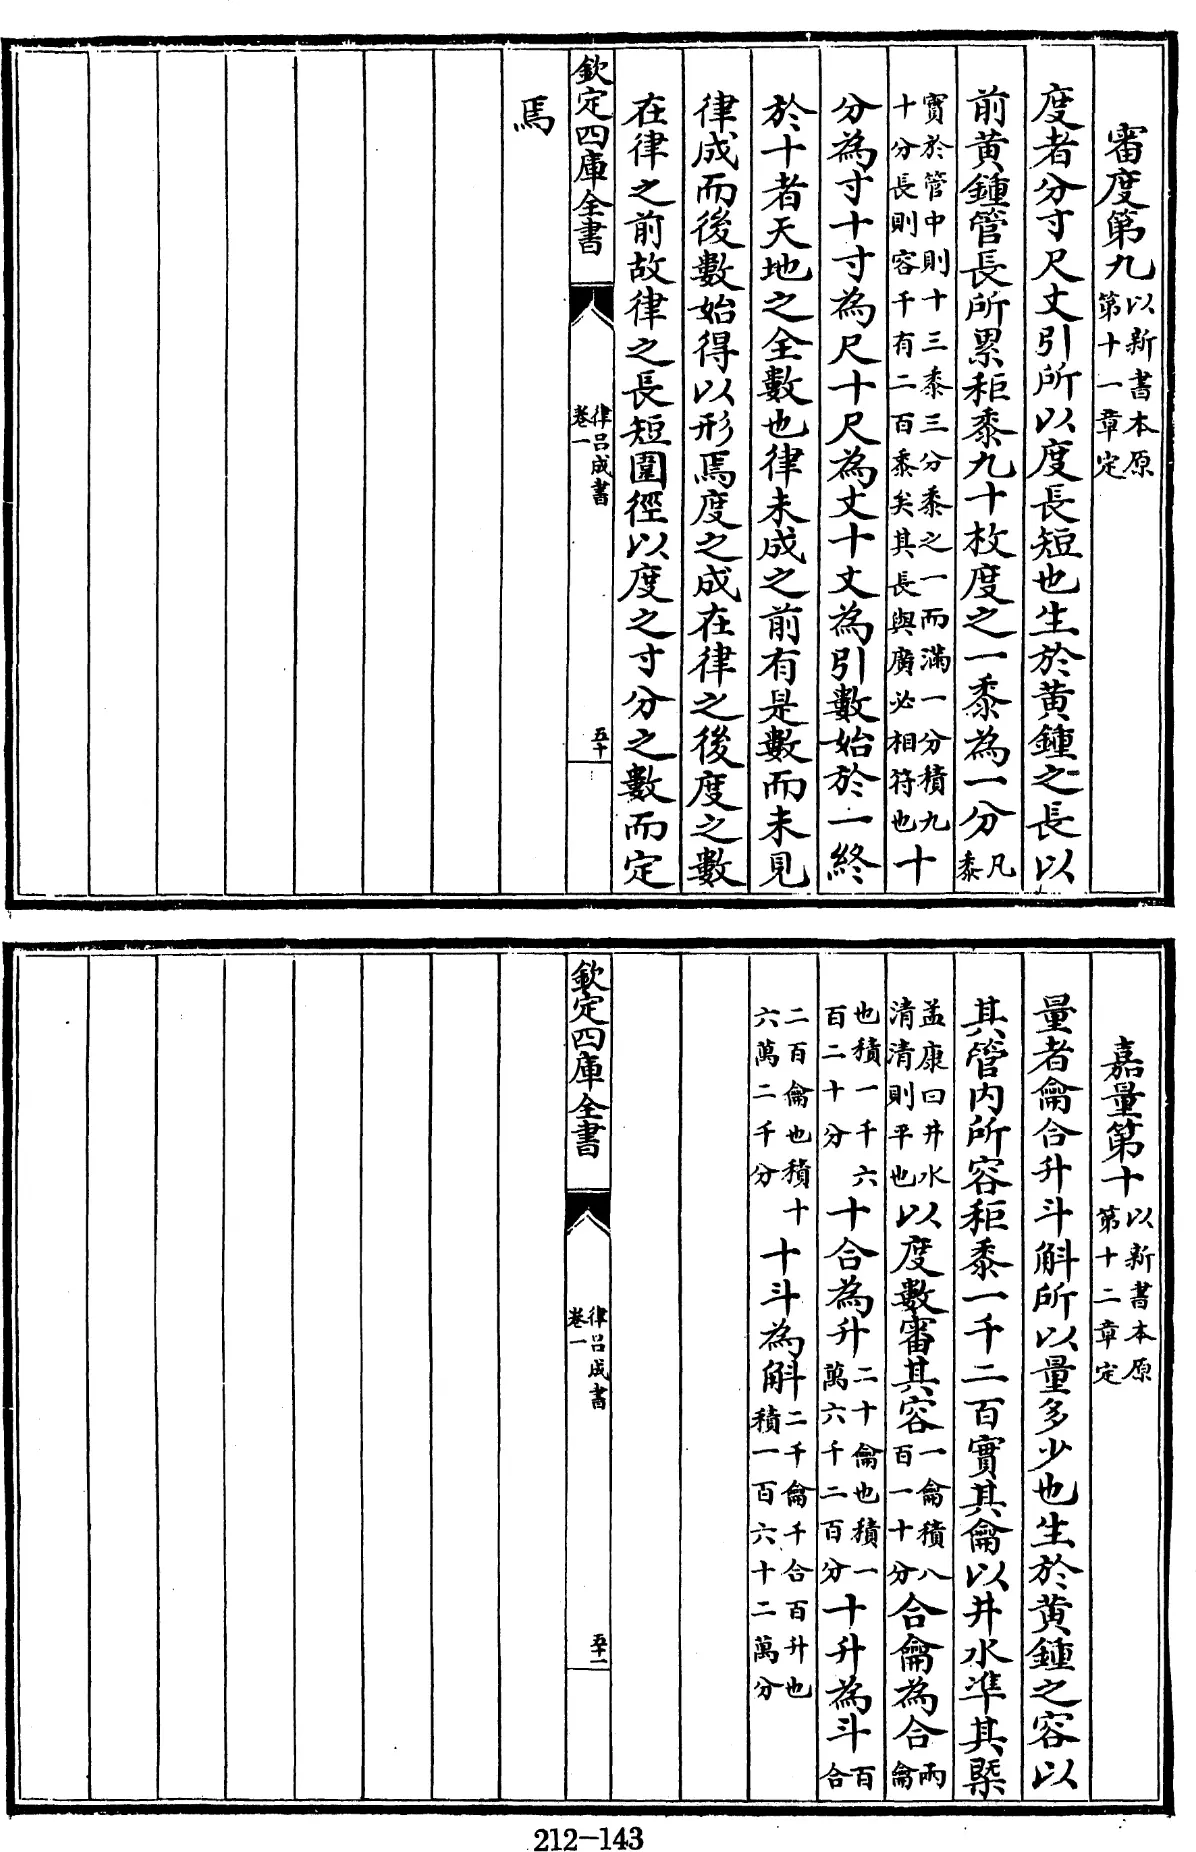 審度第九以新書本原第十一章定
度者分寸尺丈引所以度長短也生於黄鍾之長以
前黄鍾管長所累秬黍九十枚度之一黍為一分凡黍
實於管中則十三黍三分黍之一而滿一分積九十分長則容千有二百黍矣其長與廣必相符也十
分為寸十寸為尺十尺為丈十丈為引數始於一終
於十者天地之全數也律未成之前有是數而未見
律成而後數始得以形焉度之成在律之後度之數
在律之前故律之長短圍徑以度之寸分之數而定
欽定四庫全書 律吕成書 卷一 五十
焉
嘉量第十以新書本原第十二章定
量者龠合升斗斛所以量多少也生於黄鍾之容以
其管内所容秬黍一千二百實其龠以井水準其槩
孟康曰井水清清則平也以度數審其容一龠積八百一十分合龠為合兩龠
也積一千六百二十分十合為升二十龠也積一萬六千二百分十升為斗百合
二百龠也積十六萬二千分十斗為斛二千龠千合百升也積一百六十二萬分
欽定四庫全書 律吕成書 卷一 五十一
212-143